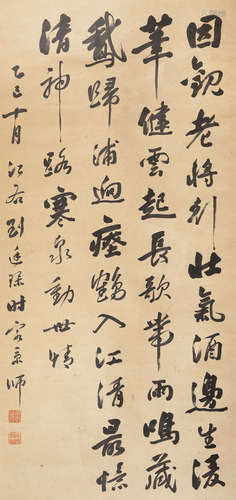 因觀老將壯氣酒邊生凌
健雲起長歌帶雨鳴藏
鵝歸浦迥瘞鶴入江清最憶
清神路寒泉動世情
乙巳十月江右劉廷琛時客京師